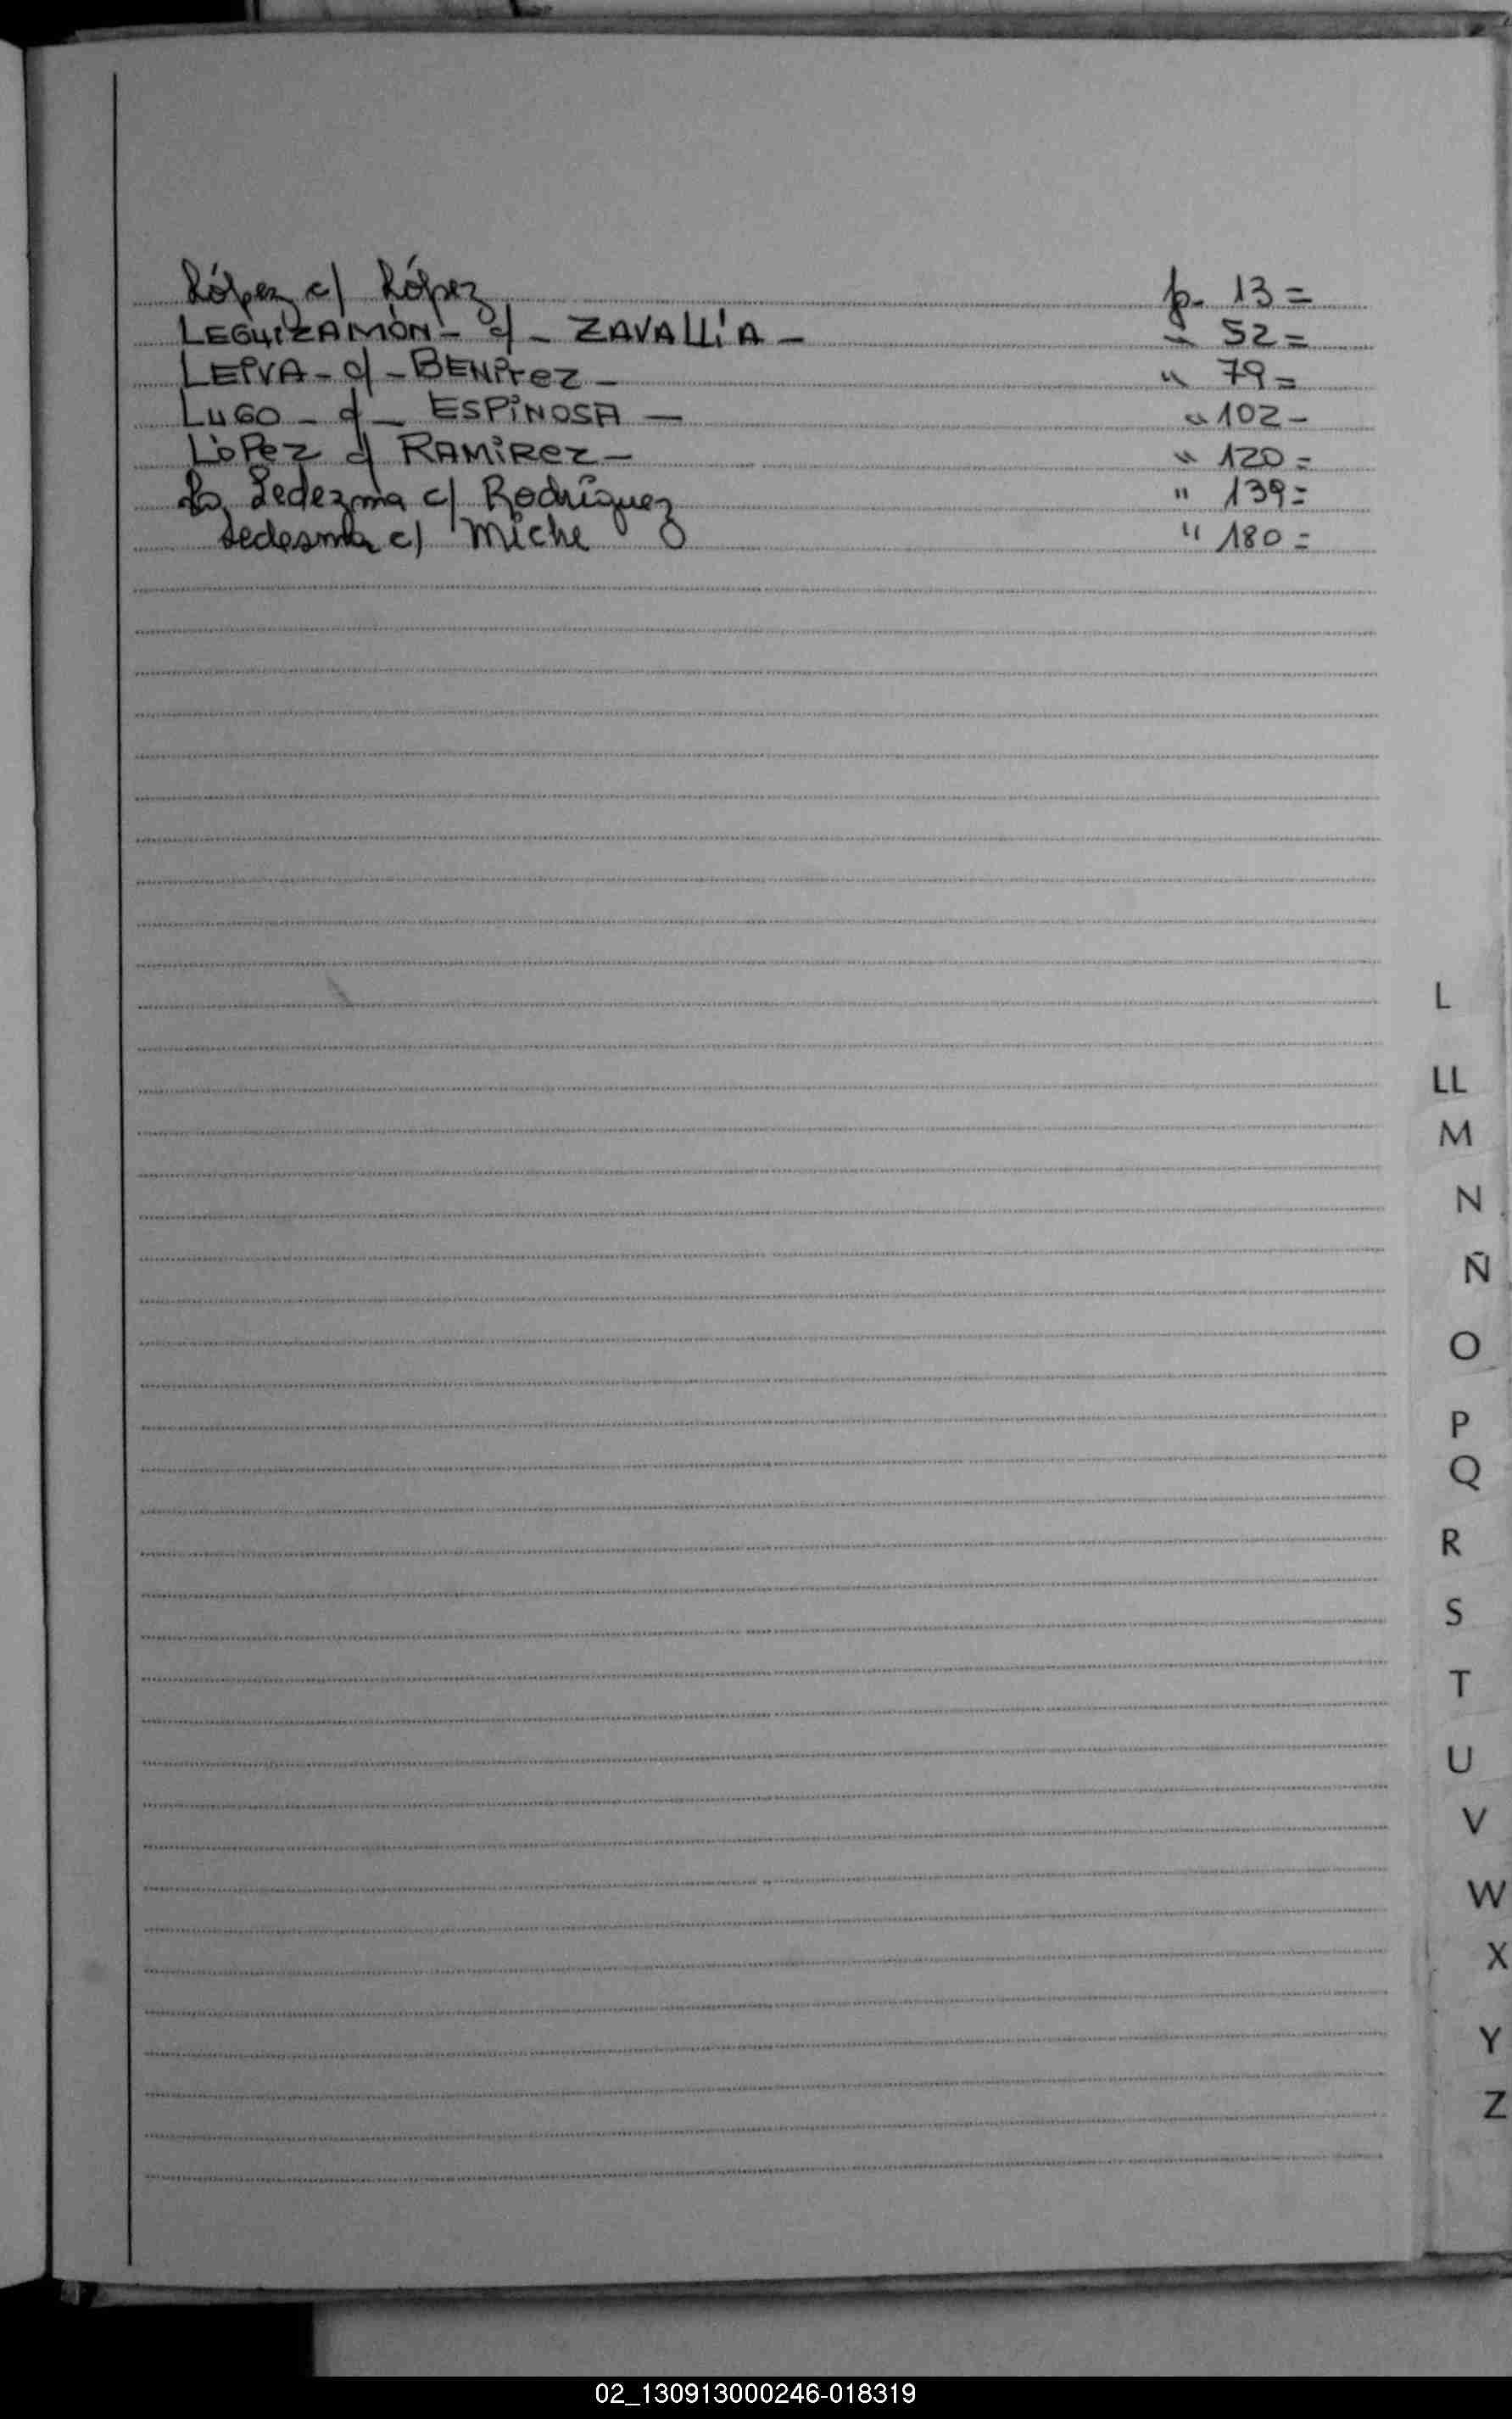 López c/ López p. 13=
LEGUIZAMÒN - c/ - ZAVALLÍA - " 52=
LEIVA - c/ - BENITEZ - " 79=
LUGO - c/ - ESPINOSA - " 102-
LÒPEZ c/ RAMIREZ - " 120=
Ledezma c/ Rodríguez " 139=
Ledesma c/ Miche " 180=
L
LL
M
N
Ñ
O
P
Q
R
S
T
U
V
W
X
Y
Z
02_130913000246-018319